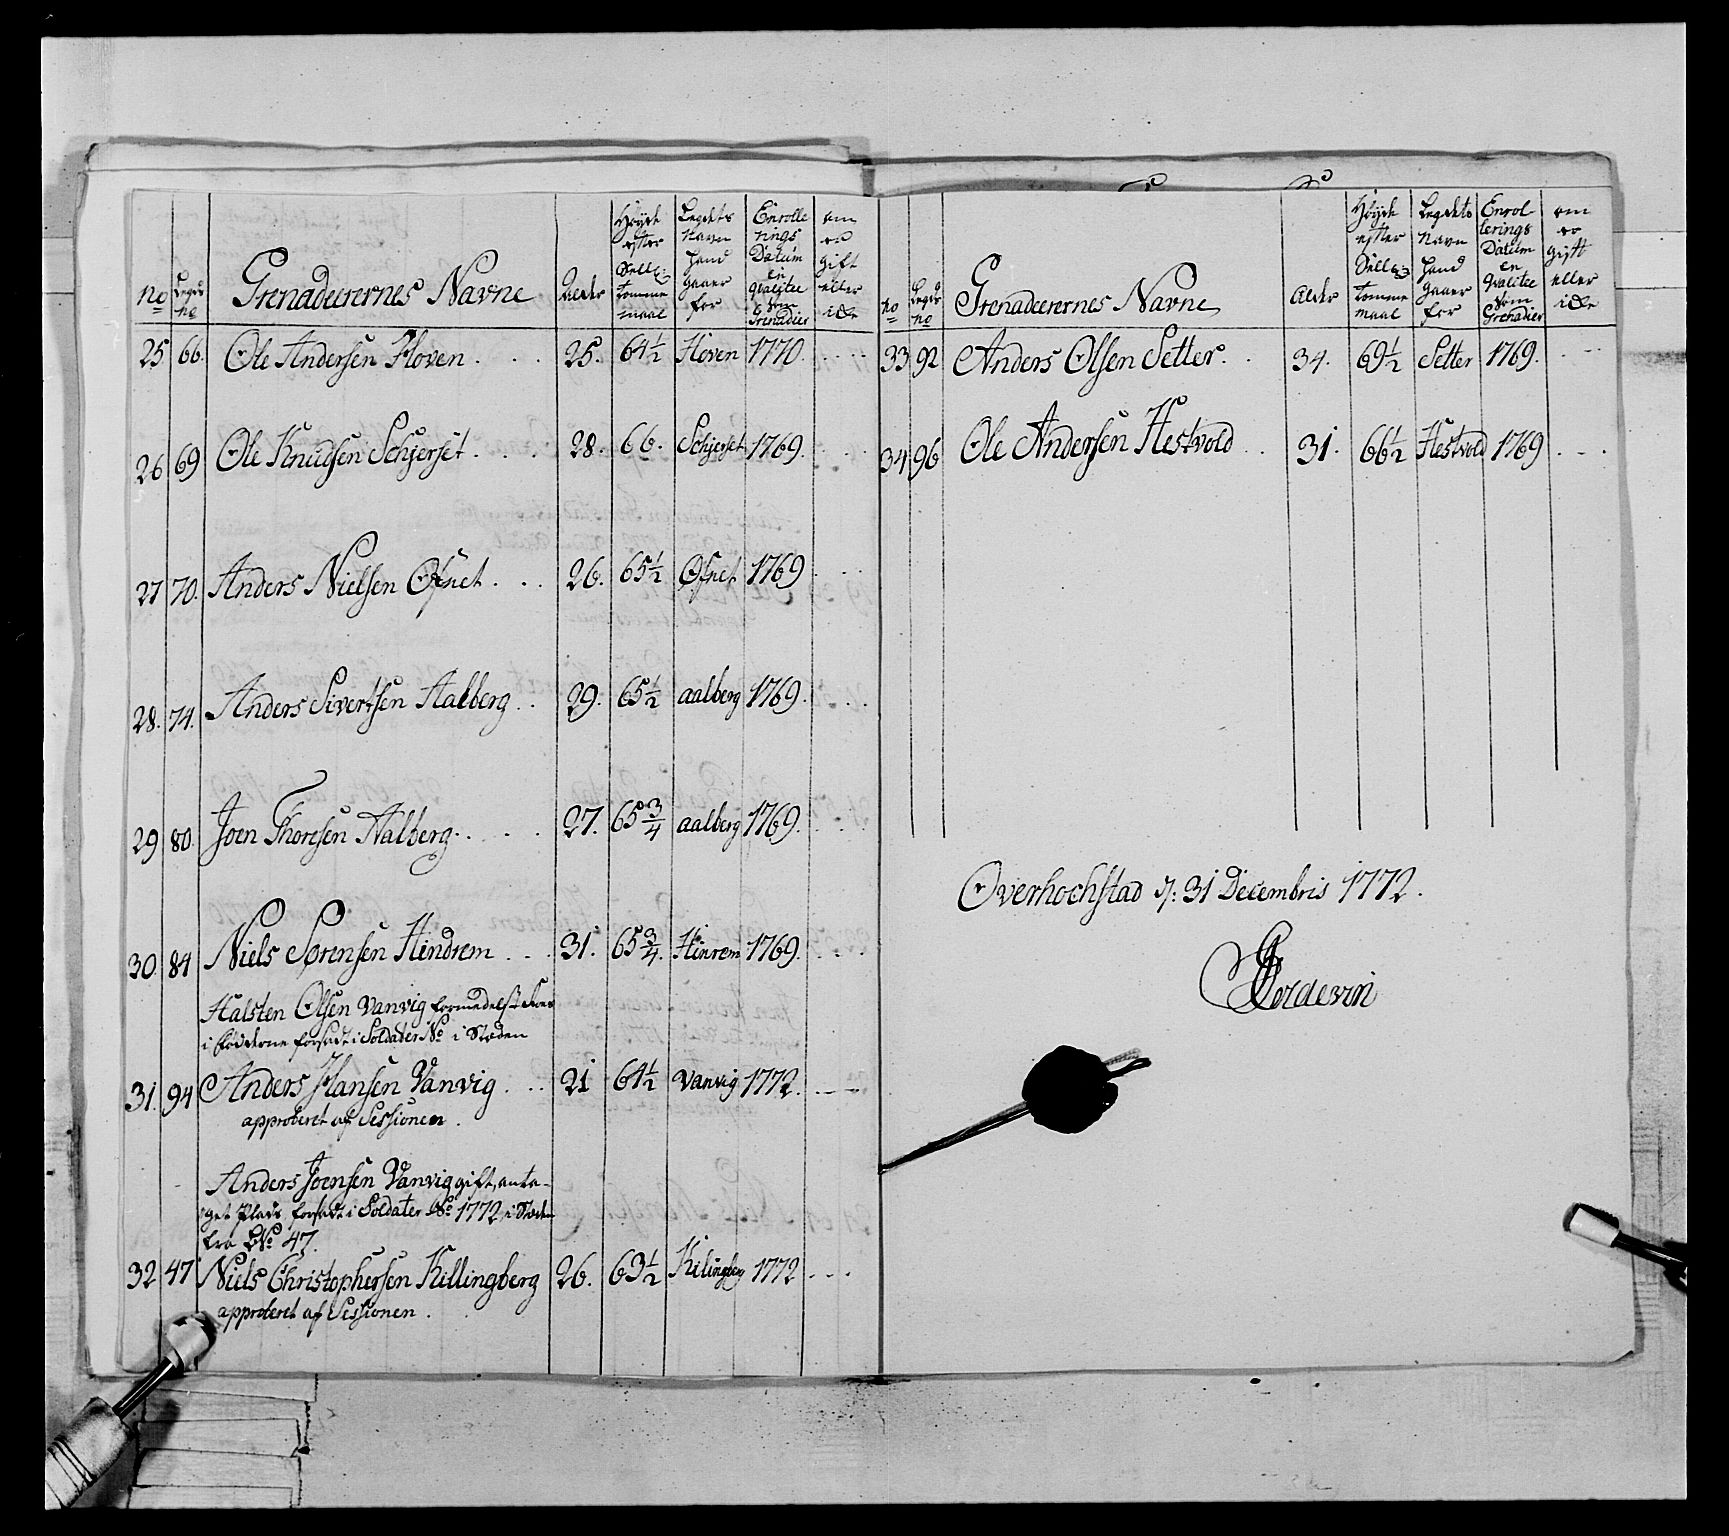 No
Legds
no
Grenadeerernes Navne
Alder
Höyde
efter
Sell:
tomme
maal
Legdets
Navn
hand
gaaer
for
Enrolle
rings
Datum
en
qvalitee
som
Grenadier
om
er
gift
eller
icke
25 66. Ole Andersen Hoven . . . 25. 64½ Hoven 1770. . . . .
26 69 Ole Knudsen Schjerset . . . 28. 66. Schjerset 1769. . . .
27 70. Anders Nielsen Øfnet . . . 26. 65½ Øfnet 1769 . . .
28. 74. Anders Sivertsen Aalberg . . 29. 65½ aalberg 1769. . . .
29 80. Joen Thoresen Aalberg . . . . 27. 65¾ aalberg 1769. . . .
30 84 Niels Sørensen Hindrem . . . 31. 65¾. Hinrem 1769. . . .
Halsten Olsen Vanvig formedelst
i forsadt i Soldater No i Stæden
31. 94 Anders Hansen Vanvig . . . 21 64½ Vanvig 1772. . . .
approberet af Sessionen .
Anders Joensen Vanvig gift, anta-
get Plads, forsadt i Soldater No 1772, i Stæden
fra No 47.
32 47 Niels Christophersen Killingberg 26. 63½ Kilingberg 1772 . . .
approberet af Sessionen .
no
Legds
no
Grenadeerernes Navne
Alder
Höyde
efter
Sell:
tomme
maal
Legdets
Navn
hand
gaaer
for
Enrol
lerings
Datum
en
qvalitee
som
Grenadier
om
er
gift
eller
icke
33 92 Anders Olsen Setter . . 34. 69½ Setter 1769. . - - .
34 96 Ole Andersen Hestvold . . 31. 66½ Hestvold 1769 . - .
Overhochstad d: 31 Decembris 1772.